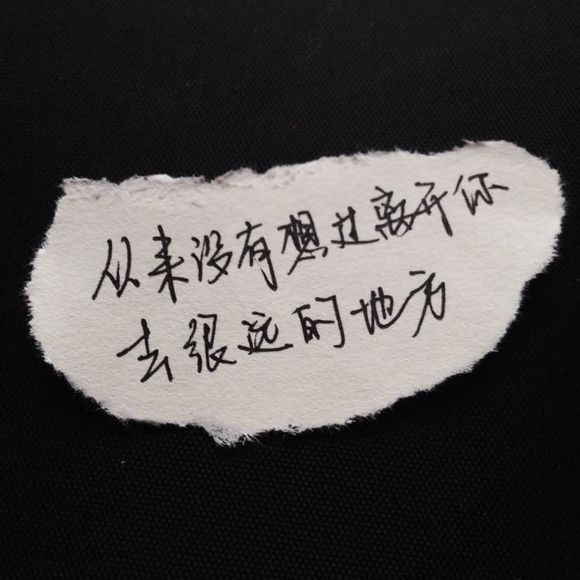 从来没有想过离开你
去很远的地方